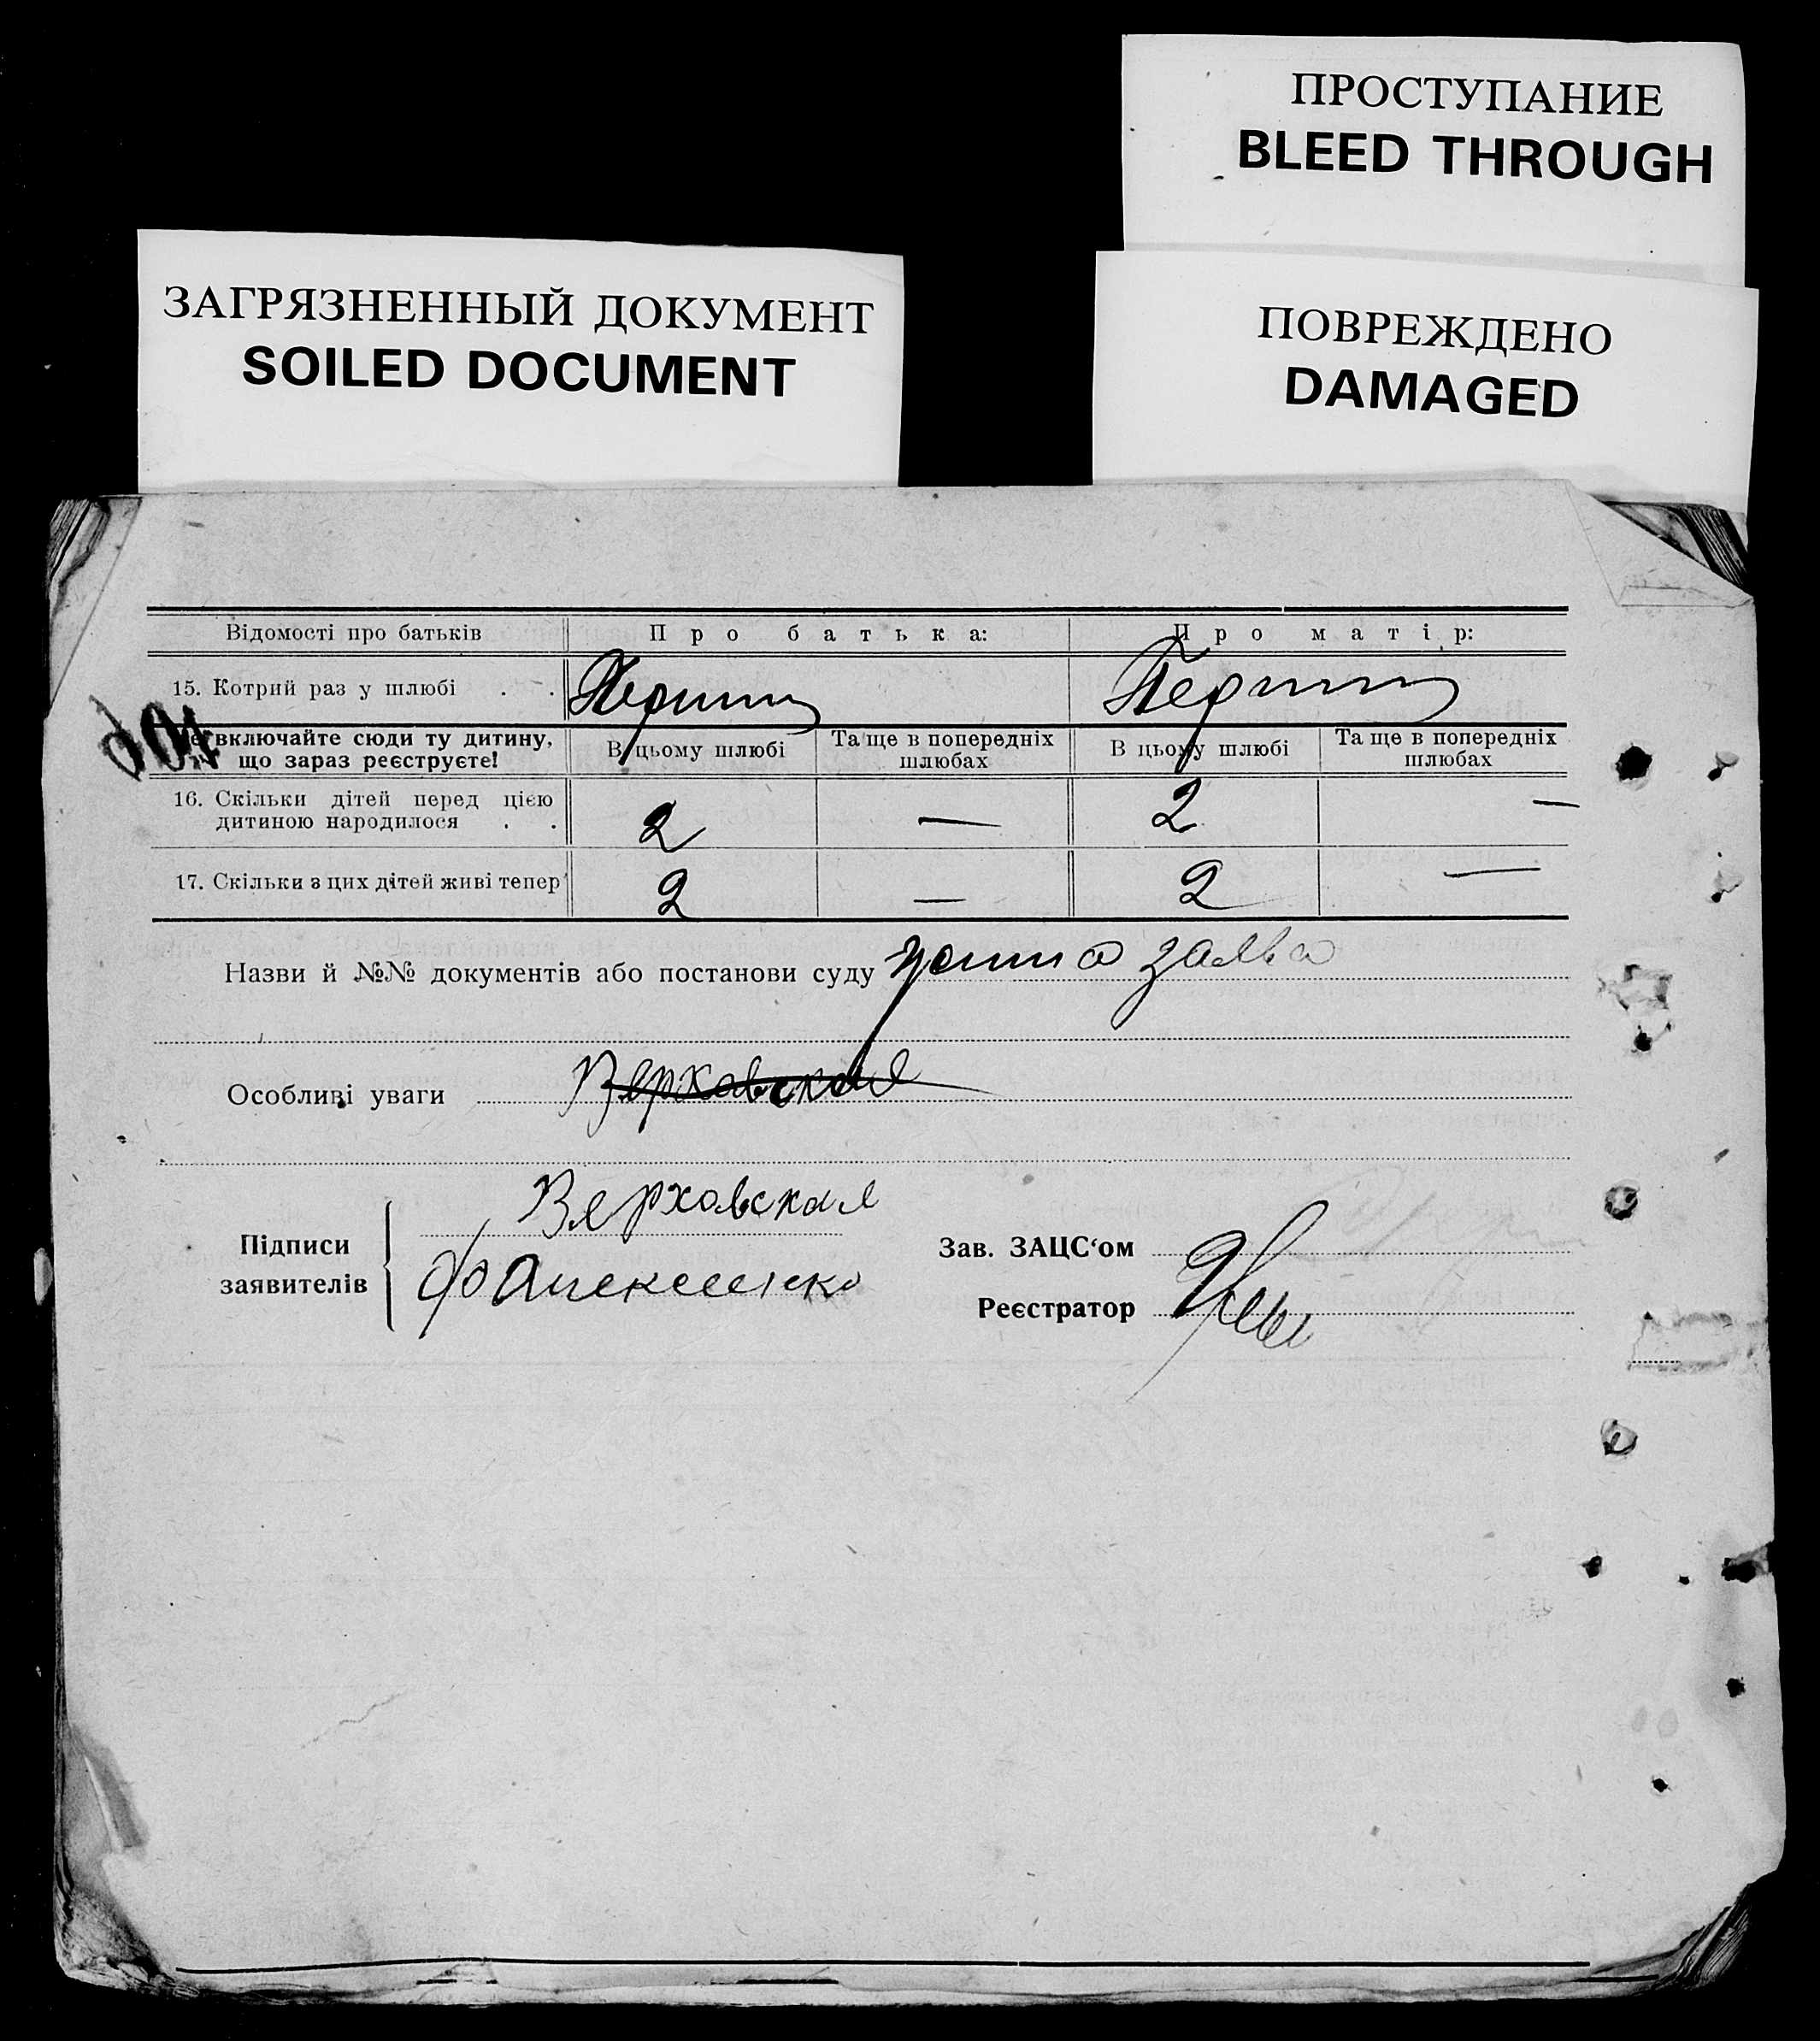 ПРОСТУПАНИЕ
BLEED THROUGH
ЗАГРЯЗНЕННЫЙ ДОКУМЕНТ
SOILED DOCUMENT
ПОВРЕЖДЕНО
DAMAGED
Відомості про батьків Про батька: Про матір:
15. Котрий раз у шлюбі . . Перший Перший
Не включайте сюди ту дитину, В цьому шлюбі Та ще в попередніх В цьому шлюбі Та ще в попередніх
що зараз реєструєте! шлюбах шлюбах
16. Скільки дітей перед цією 2 — 2 —
дитиною народилося . .
17. Скільки з цих дітей живі тепер 2 — 2 —
Назви й №№ документів або постанови суду усна заява
Особливі уваги Верховская
Верховская
Підписи
заявителів
Зав. ЗАЦС'ом
Реєстратор